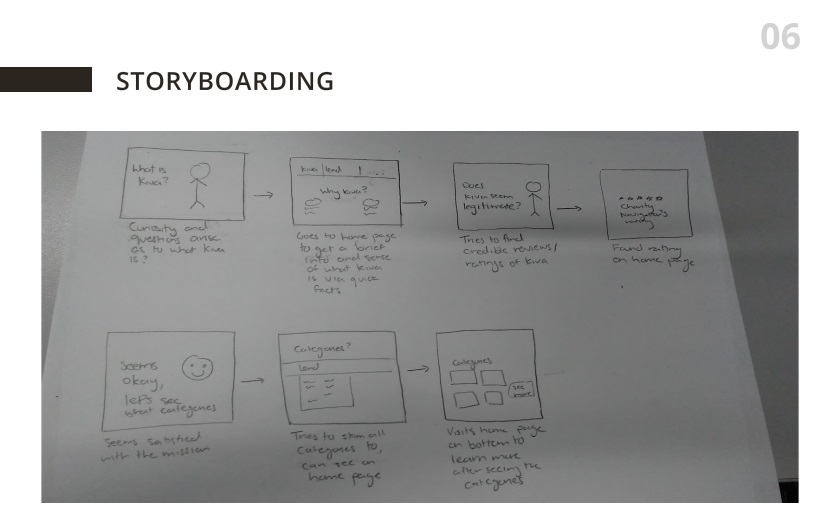 06
STORYBOARDING
What is
Kiva?
Curiosity and
questions arise
as to what Kiva
is?
Kiva lend
Why Kiva?
Goes to home page
to get a brief
info and sense
of what Kiva
is via quick
facts
Does
Kiva seem
legitimate?
Tries to find
credible reviews/
ratings of Kiva
Charity
Navigator's
rating
Found rating
on home page
Seems
okay,
let's see
what categories
Seems satisfied
with the mission
Categories?
Lend
Tries to skim all
categories to,
can see on
home page
Categories
see
more
Visits home page
on bottom to
learn more
after seeing the
categories